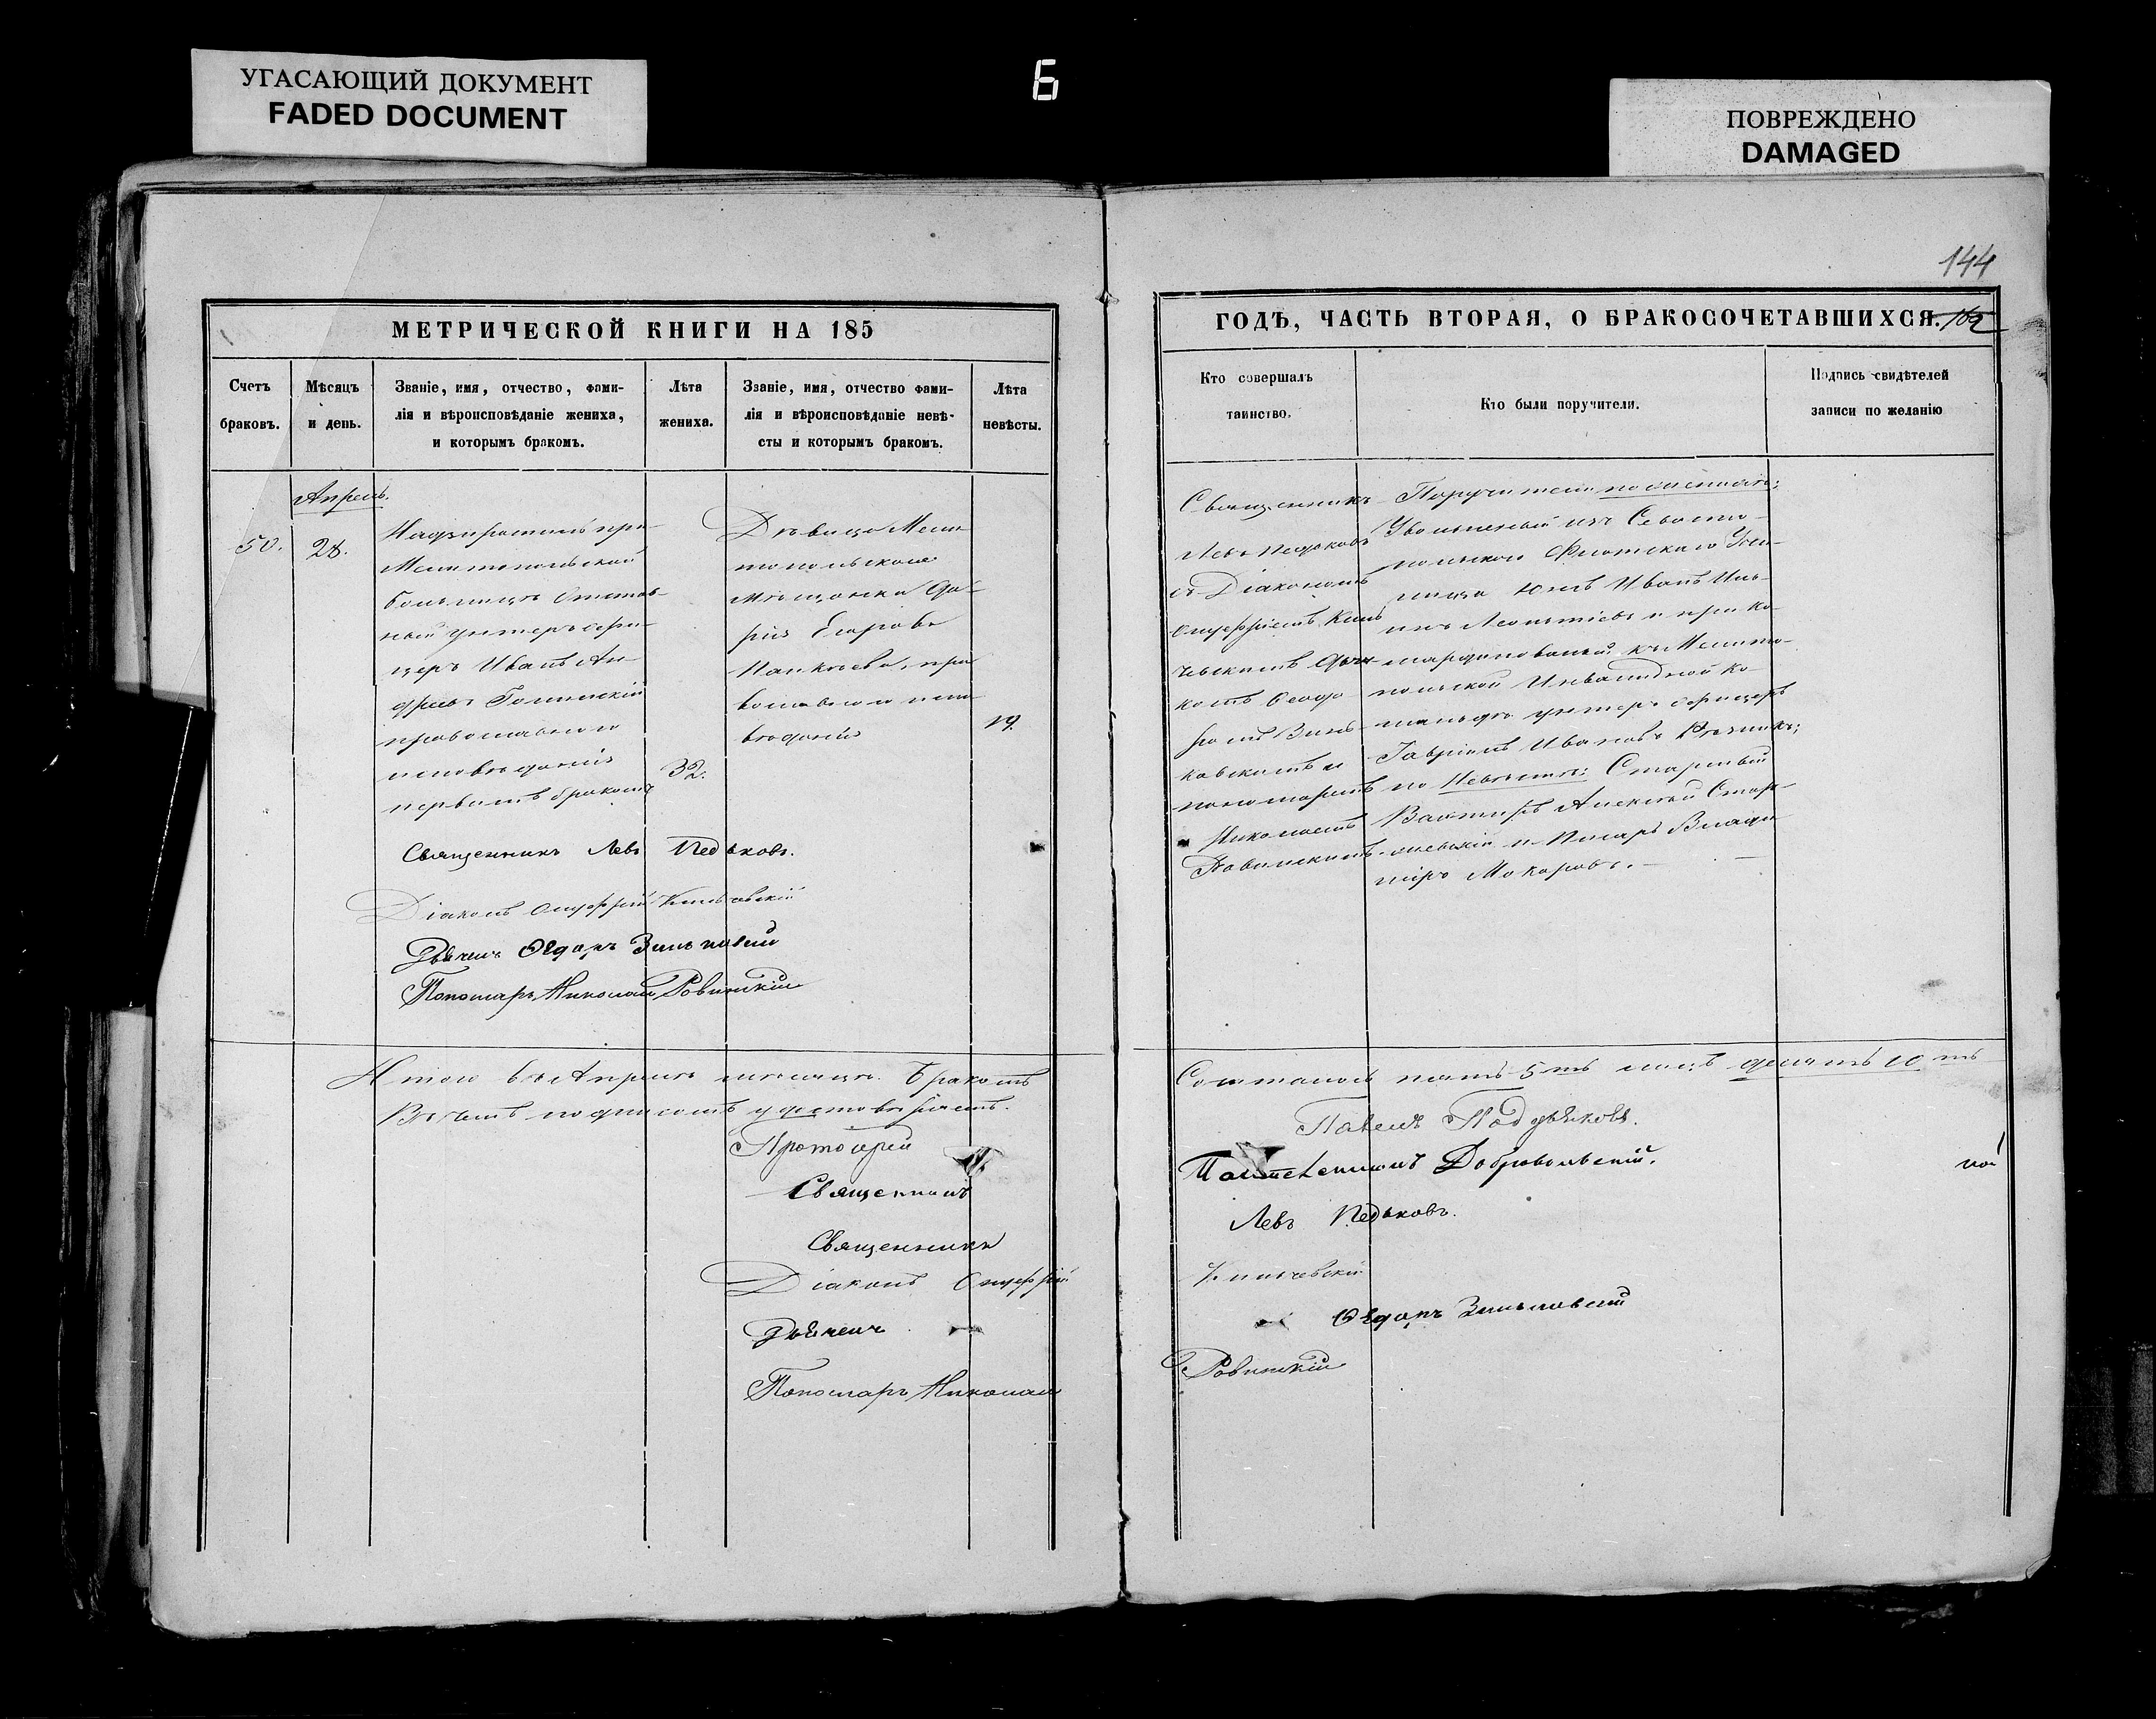 УГАСАЮЩИЙ ДОКУМЕНТ
FADED DOCUMENT
6
ПОВРЕЖДЕНО
DAMAGED
144
МЕТРИЧЕСКОЙ КНИГИ НА 185
Счетъ
браковъ.
Мѣсяцъ
и день.
Званіе, имя, отчество, фами-
лія и вѣроисповѣданіе жениха,
и которымъ бракомъ.
Лѣта
жениха.
Званіе, имя, отчество фами-
лія и вѣроисповѣданіе невѣ-
сты и которымъ бракомъ.
Лѣта
невѣсты.
Апрель.
50.
28.
Надзиратель при
Мелитопольской
больницѣ Отстав-
ный унтеръ офи-
церъ Иванъ Ан-
дреевъ
православнаго
исповѣданія
первымъ бракомъ
32.
Дѣвица Мели-
топольская
мѣщанка Да-
рія Егорова
православнаго испо-
вѣданія
19.
Священникъ Левъ Педьковъ.
Діаконъ Онуфрій
Дьячекъ Ѳедоръ Зиньковскій
Пономарь Николай Ровинскій
Итого въ Апрелѣ мѣсяцѣ браковъ
Въ чемъ подписомъ удостовѣряемъ.
Протоіерей
Священникъ
Священникъ
Діаконъ Онуфрій
Дьячекъ
Пономарь Николай
ГОДЪ, ЧАСТЬ ВТОРАЯ, О БРАКОСОЧЕТАВШИХСЯ.
Кто совершалъ
таинство.
Кто были поручители.
Подпись свидѣтелей
записи по желанію
Священникъ
Левъ Педьковъ
съ Діакономъ
Онуфріемъ
Дьяч-
комъ Ѳедо-
ромъ Зинь-
ковскимъ и
пономаремъ
Николаемъ
Ровинскимъ
Поручители по женихѣ:
Уволенный изъ Севасто-
польскаго Флотскаго
Иванъ Иль-
инъ Леонтіевъ и при ко-
мандированый къ Мелито-
польской Инвалидной ко-
мандѣ унтеръ офицеръ
Гавріилъ Ивановъ
по Невѣстѣ: Старшый
Вахтеръ Алексѣй
и Писарь Влади-
міръ Макаровъ.
Состалось пять 5ть лицъ десять 10ть
Павелъ Поддьяковъ.
Добровольскій.
Левъ Педьковъ.
Ѳедоръ Зиньковскій
Ровинскій